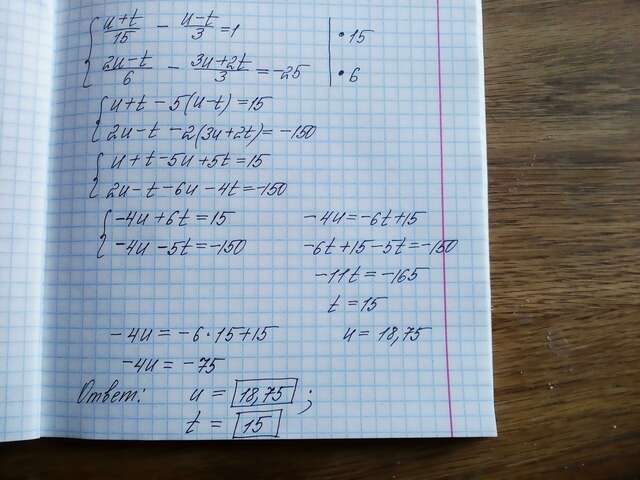 { (u+t)/15 − (u−t)/3 = 1 | • 15
(2u−t)/6 − (3u+2t)/3 = −25 | • 6
{ u+t − 5(u−t) = 15
2u−t − 2(3u+2t) = −150
{ u+t−5u+5t = 15
2u−t−6u−4t = −150
{ −4u+6t = 15 −4u = −6t+15
−4u−5t = −150 −6t+15−5t = −150
−11t = −165
t = 15
−4u = −6·15+15 u = 18,75
−4u = −75
Ответ: u = 18,75 ;
t = 15